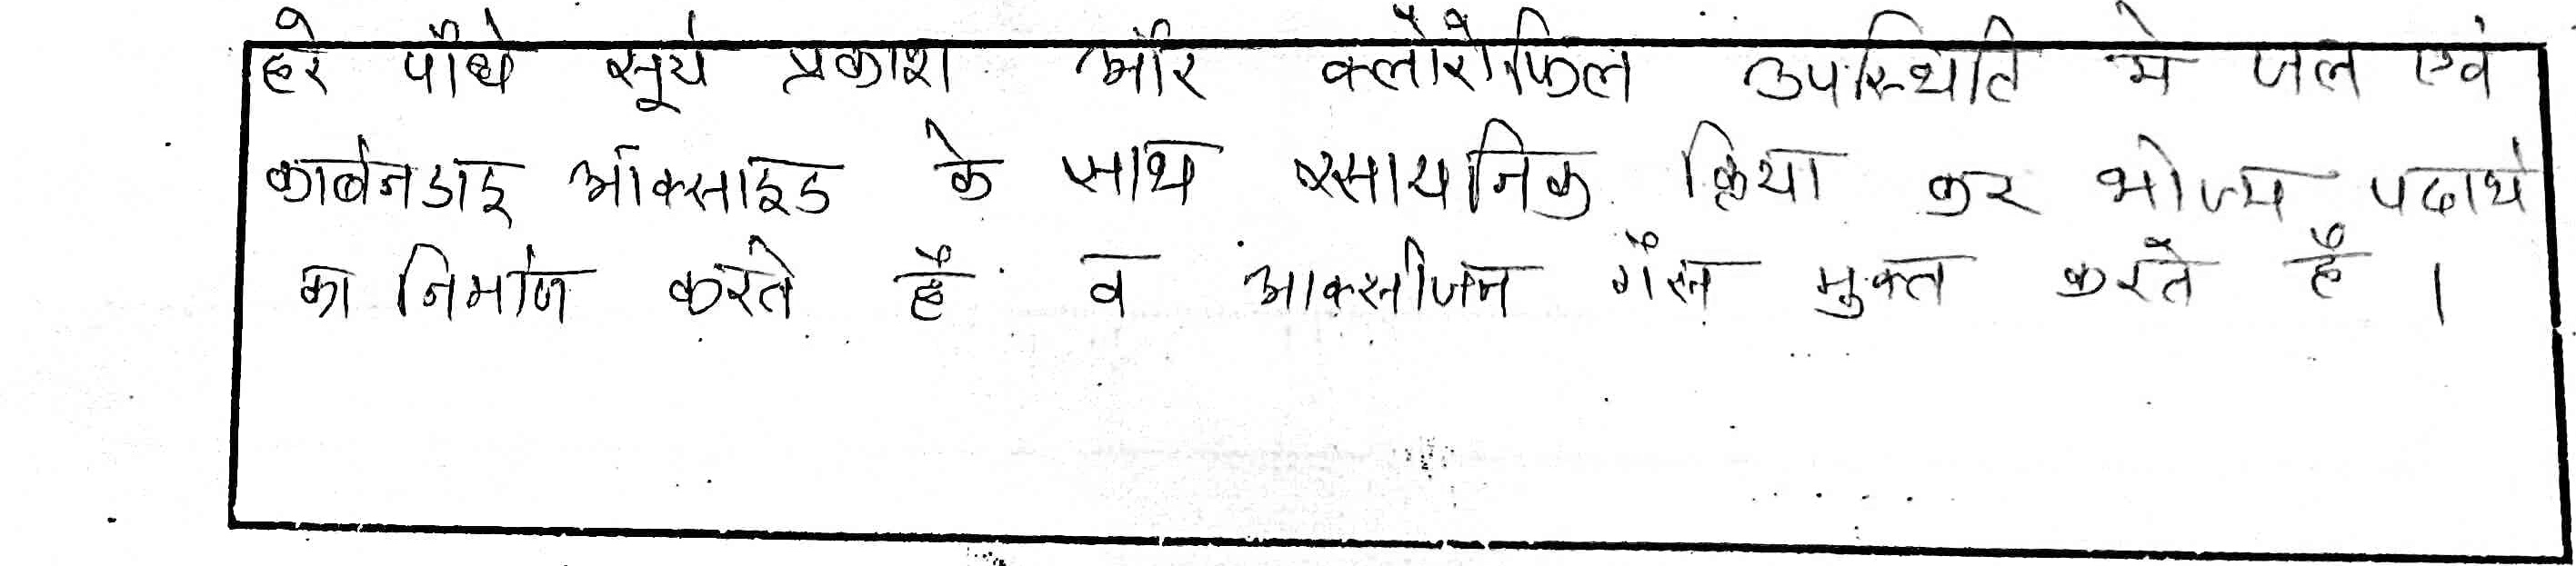 हरे पौधे सूर्य प्रकाश और क्लौरौफिल उपस्थिति मे जल एवं
कार्बनडाइ ऑक्साइड के साथ रसायनिक क्रिया कर भोज्य पदार्थ
का निर्माण करते है व आक्सीजन गैस मुक्त करते है ।